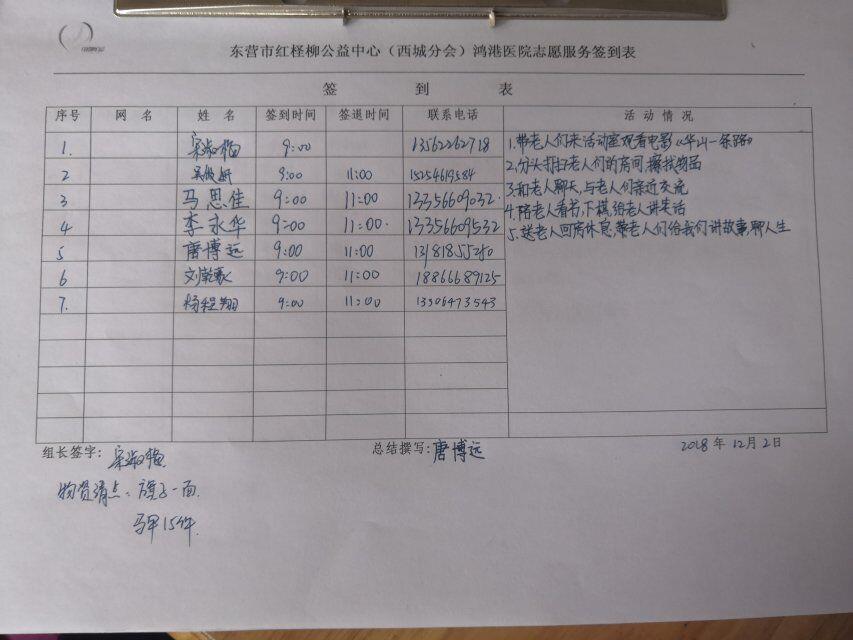 东营市红柽柳公益中心（西城分会）鸿港医院志愿服务签到表
签 到 表
序号 网 名 姓 名 签到时间 签退时间 联系电话 活 动 情 况
1. 宋淑梅 9:00 13562262718
2 9:00 11:00 15254619584
3 马思佳 9:00 11:00 13356609032
4 李永华 9:00 11:00 13356609532
5 唐博远 9:00 11:00 13181855240
6 刘乾毅 9:00 11:00 18866689125
7. 杨程翔 9:00 11:00 13306473543
1.带老人们来活动室观看电影《华山一条路》
2.分头打扫老人们的房间,擦找物品
3.和老人聊天,与老人们亲近交流
4.陪老人看书,下棋,给老人讲笑话
5.送老人回房休息,带老人们给我们讲故事,聊人生
组长签字: 宋淑梅 总结撰写: 唐博远 2018年12月2日
物资清点: 旗子一面.
马甲15件.